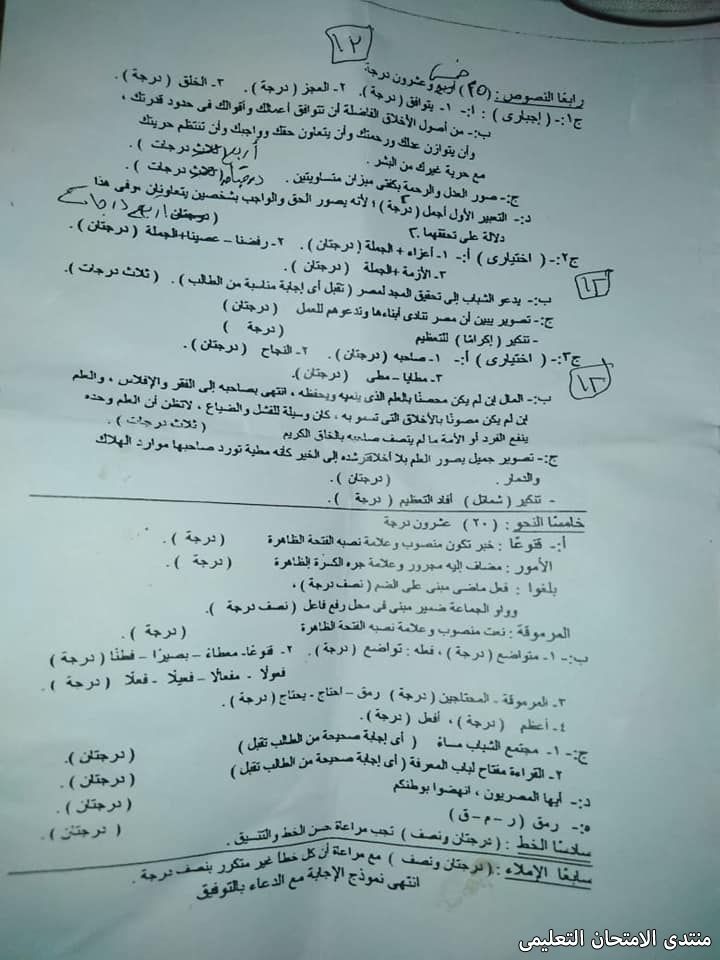 ١٢
رابعًا النصوص : (٢٥) خمس وعشرون درجة
ج١:- ( إجبارى ) : أ:- ١- يتوافق ( درجة ). ٢- العجز ( درجة ). ٣- الخلق ( درجة ).
ب:- من أصول الأخلاق الفاضلة أن تتوافق أعمالك وأقوالك فى حدود قدرتك ،
وأن يتوازن عدلك ورحمتك وأن يتعاون حقك وواجبك وأن تنتظم حريتك
مع حرية غيرك من البشر . أربع ( ثلاث درجات ) .
ج:- صور العدل والرحمة بكفتى ميزان متساويتين . ( ثلاث درجات ) .
د:- التعبير الأول أجمل ( درجة ) ؛ لأنه يصور الحق والواجب بشخصين يتعاونان ، وفى هذا
دلالة على تحققهما . ( درجتان )
ج٢:- ( اختيارى ) أ:- ١- أعزاء + الجملة ( درجتان ). ٢- رفضنا – عصينا+الجملة ( درجتان ).
٣- الأزمة +الجملة ( درجتان ).
١٢
ب:- يدعو الشباب إلى تحقيق المجد لمصر ( تقبل أى إجابة مناسبة من الطالب ) . ( ثلاث درجات ).
ج:- تصوير يبين أن مصر تنادى أبناءها وتدعوهم للعمل ( درجتان )
- تنكير ( إكرامًا ) للتعظيم ( درجة )
ج٣:- ( اختيارى ) أ:- ١- صاحبه ( درجتان ). ٢- النجاح ( درجتان ).
٣- مطايا – مطى ( درجتان ).
١٢
ب:- المال إن لم يكن محصنًا بالعلم الذى ينميه ويحفظه ، انتهى بصاحبه إلى الفقر والإفلاس ، والعلم
إن لم يكن مصونًا بالأخلاق التى تسمو به ، كان وسيلة للفشل والضياع ، لاتظن أن العلم وحده
ينفع الفرد أو الأمة ما لم يتصف صاحبه بالخلق الكريم ( ثلاث درجات ) .
ج:- تصوير جميل يصور العلم بلا أخلاق ترشده إلى الخير كأنه مطية تورد صاحبها موارد الهلاك
والدمار . ( درجتان ) .
- تنكير ( شمائل ) أفاد التعظيم ( درجة ) .
خامسًا النحو : ( ٢٠ ) عشرون درجة
أ:- قنوعًا : خبر تكون منصوب وعلامة نصبه الفتحة الظاهرة ( درجة ) .
الأمور : مضاف إليه مجرور وعلامة جره الكسرة الظاهرة ( درجة ) .
بلغوا : فعل ماضى مبنى على الضم ( نصف درجة ) ،
وواو الجماعة ضمير مبنى فى محل رفع فاعل ( نصف درجة ).
المرموقة : نعت منصوب وعلامة نصبه الفتحة الظاهرة ( درجة ) .
ب:- ١- متواضع ( درجة ) ، فعله : تواضع ( درجة ). ٢- قنوعًا- معطاءً – بصيرًا – فطنًا ( درجة )
فعولًا - مفعالًا – فعيلًا - فعلًا ( درجة ) .
٣- المرموقة - المحتاجين ( درجة ) رمق – احتاج - يحتاج ( درجة ) .
٤- أعظم ( درجة ) ، أفعل ( درجة ).
ج:- ١- مجتمع الشباب مساءً ( أى إجابة صحيحة من الطالب تقبل ) ( درجتان ).
٢- القراءة مفتاح لباب المعرفة ( أى إجابة صحيحة من الطالب تقبل ) ( درجتان ) .
د:- أيها المصريون ، انهضوا بوطنكم ( درجتان ) .
٥:- رمق ( ر – م – ق ) ( درجتان ) .
سادسًا الخط : ( درجتان ونصف ) تجب مراعاة حسن الخط والتنسيق .
سابعًا الإملاء : ( درجتان ونصف ) مع مراعاة أن كل خطأ غير متكرر بنصف درجة .
انتهى نموذج الإجابة مع الدعاء بالتوفيق
منتدى الامتحان التعليمى